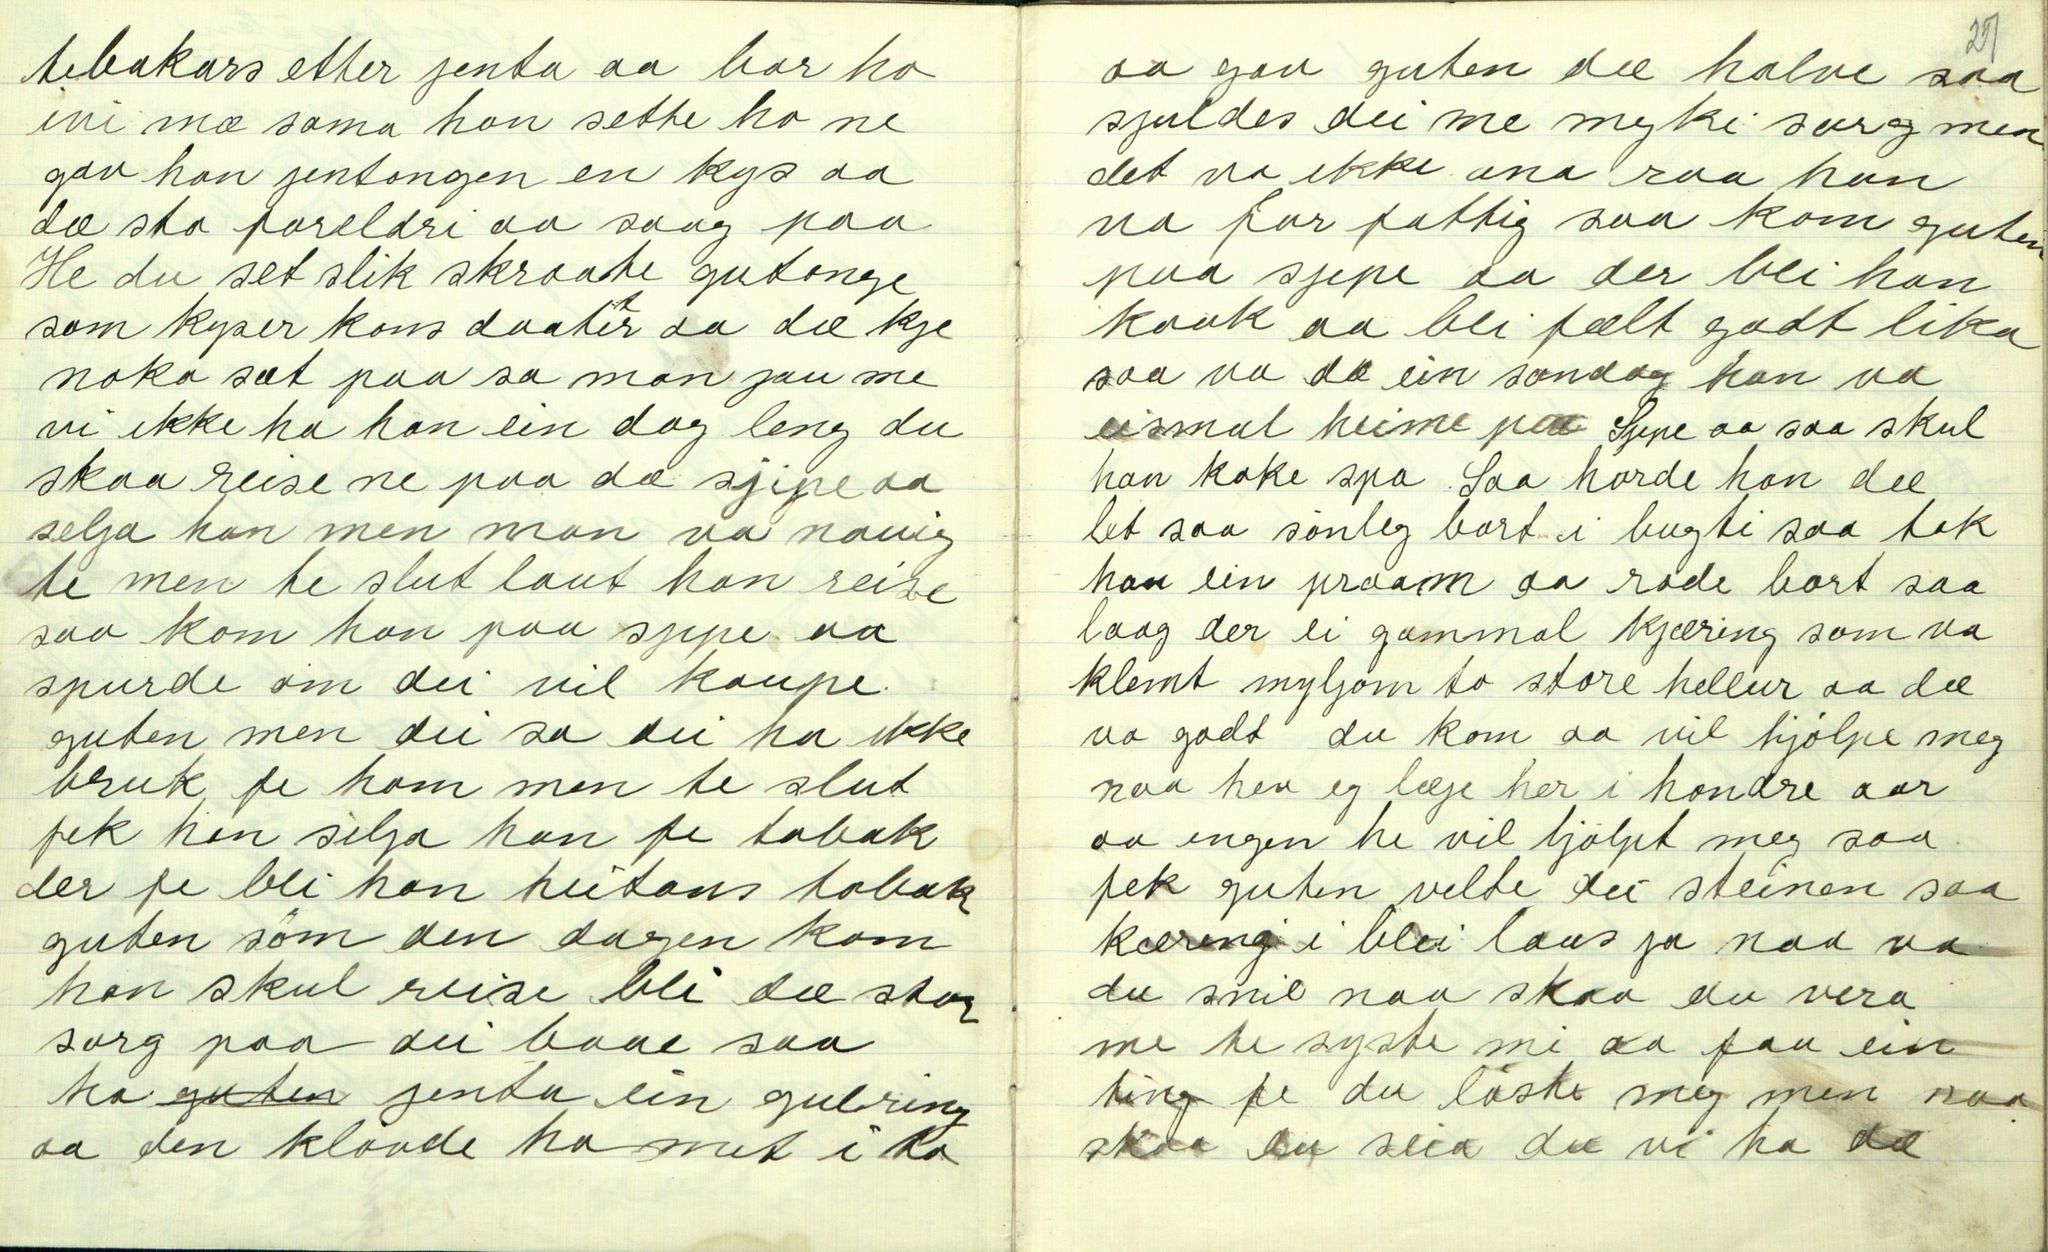 tebakars etter jenta aa bar ho
ivi mæ sama han sette ho ne
gav han jentongen en kys aa
dæ sto foreldri aa saag paa
He du set slik skraate gutonge
som kyser kons daater aa dæ kje
noko sæt paa sa man jau me
vi ikke ha han ein dag leng du
skaa reise ne paa dæ sjipe aa
selja han men man va nauig
te men te slut laut han reise
saa kom han paa sjepe aa
spurde om dei vil kaupe
guten men dei sa dei ha ikke
bruk fe ham men te slut
fek han selja han fe tobak
der fe blei han heitans tobak
guten som den dagen kom
han skul reise bli dæ stor
sorg paa dei baae saa
ha guten jenta ein gulring
aa den kløvde ho mit i to
25
aa gav guten dæ halve saa
sjuldes dei me myki sorg men
det va ikke ana raa han
va for fattig saa kom guten
paa sjepe aa der blei han
kokk aa blei fælt godt lika
saa va dæ ein søndag han va
eismal heime paa Sjepe aa saa skul
han koke spa. Saa hørde han dæ
let saa sønleg bort i bugti saa tok
han ein praam aa rode bort saa
laag der ei gammal kjæring som va
klemt myljom to store hellur aa dæ
va godt du kom aa vil hjólpe meg
naa hev eg lægje her i hondre aar
aa engen he vil hjólpt meg saa
fek guten velte dei steinen saa
kæring i blei laus ja naa va
du snil naa skaa du vera
me te syste mi aa faa ein
ting fe du løste meg men naa
skaa du seia du vi ha dæ